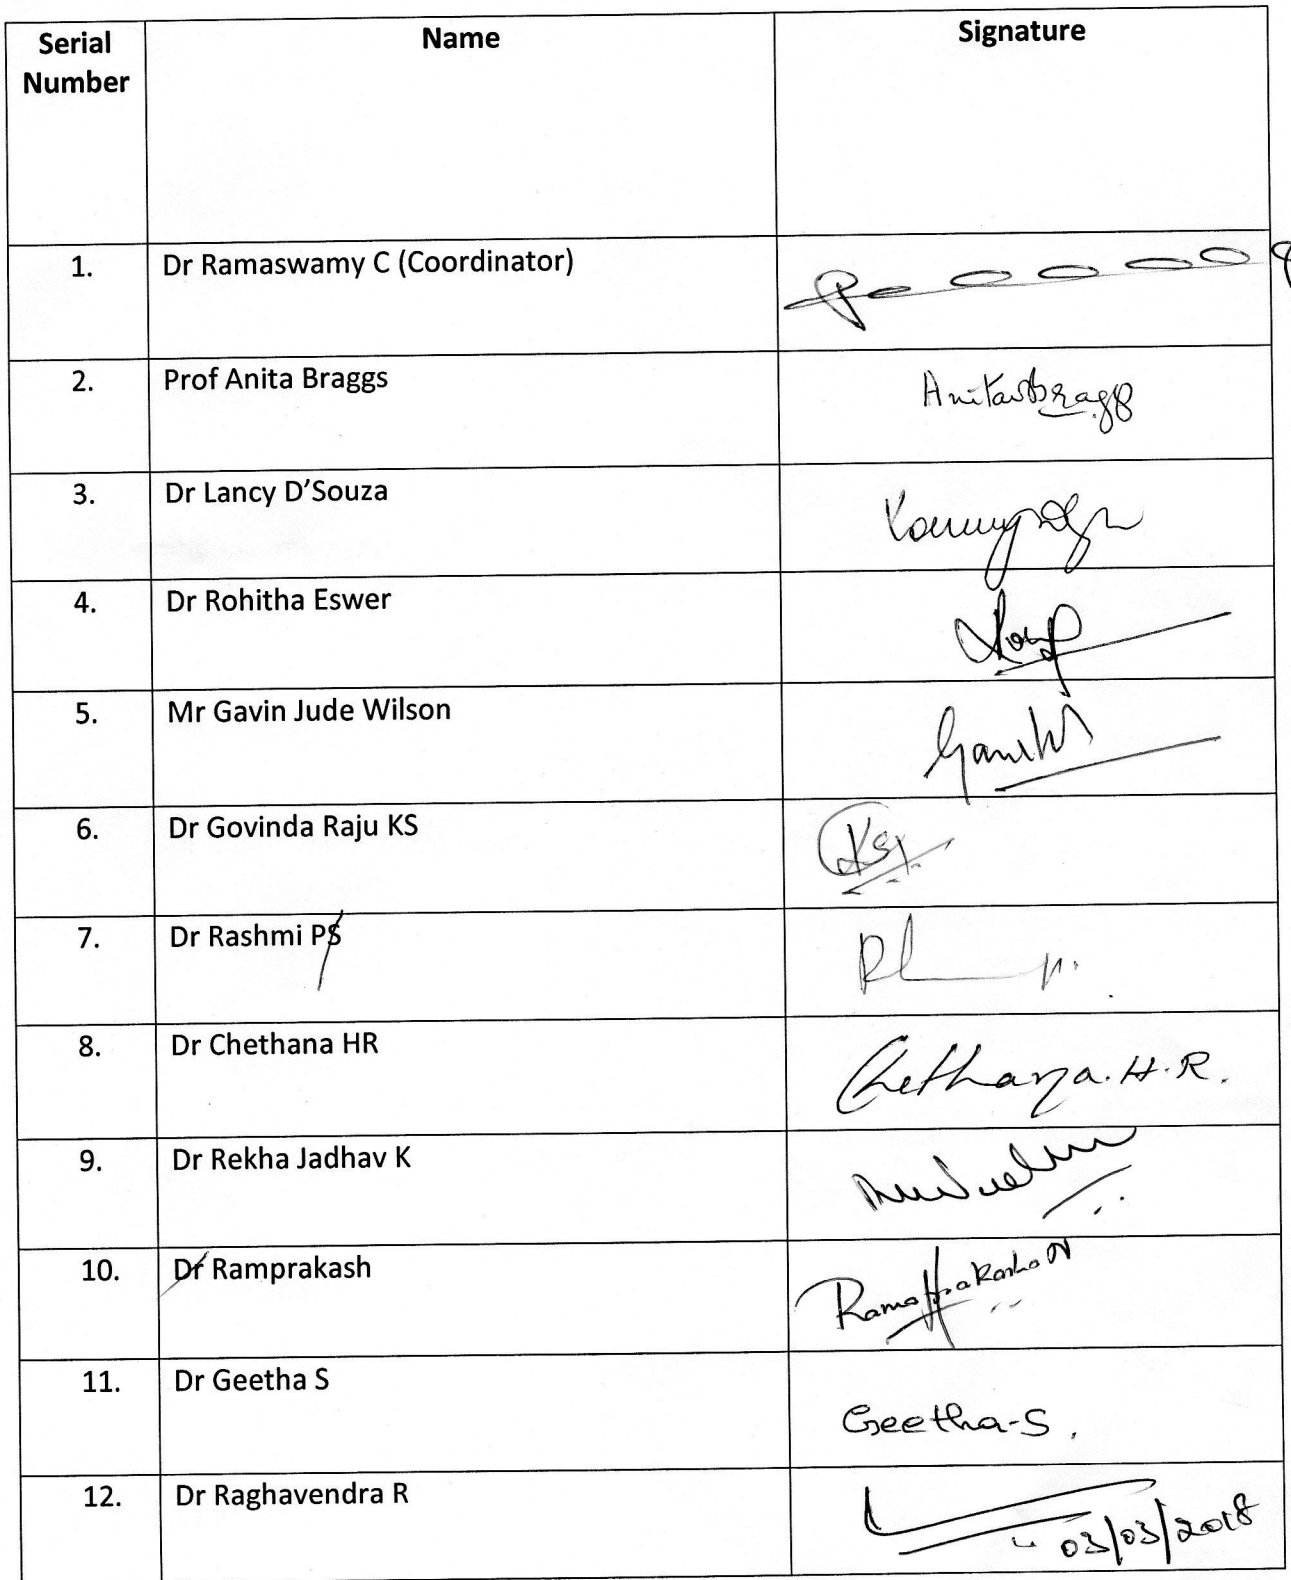 Serial Number Name Signature
1. Dr Ramaswamy C (Coordinator)
2. Prof Anita Braggs Anita Bragg
3. Dr Lancy D'Souza
4. Dr Rohitha Eswer
5. Mr Gavin Jude Wilson
6. Dr Govinda Raju KS
7. Dr Rashmi PS
8. Dr Chethana HR Chethana.H.R.
9. Dr Rekha Jadhav K
10. Dr Ramprakash
11. Dr Geetha S Geetha-S.
12. Dr Raghavendra R 03/03/2018